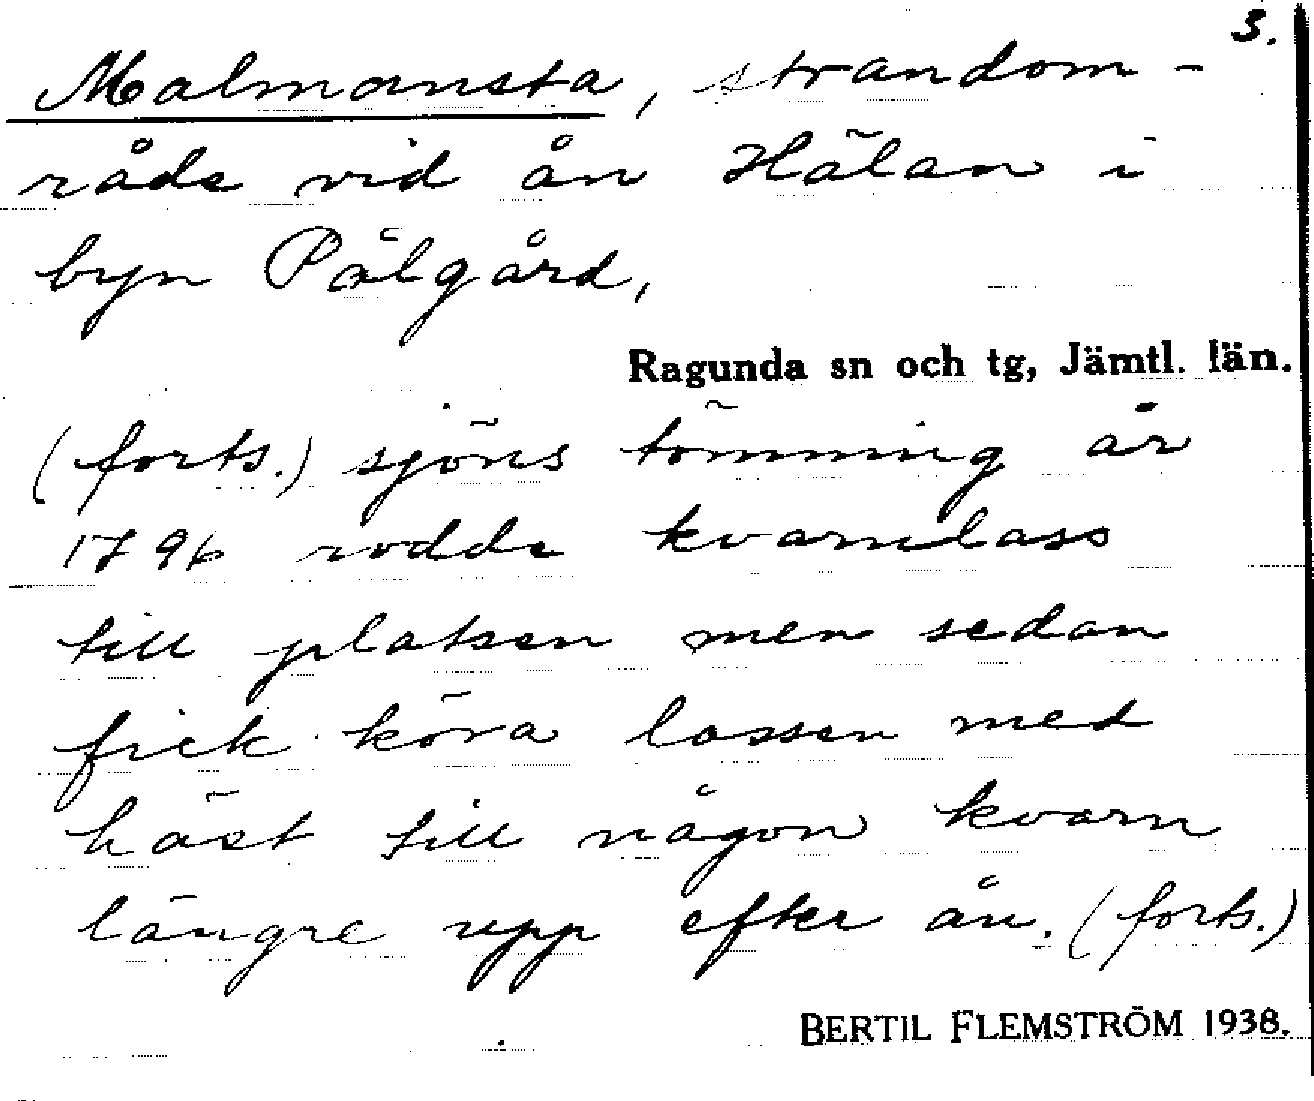 3.
Malmansta, strandom-
råde vid ån Hälan i
byn Pålgård,
Ragunda sn och tg, Jämtl. län.
(forts.) sjöns tömming är
1796 rodde kvarnlass
till platsen men sedan
fick köra lassen med
häst till någon kvarn
längre upp efter ån. (forts.)
BERTIL FLEMSTRÖM 1938.